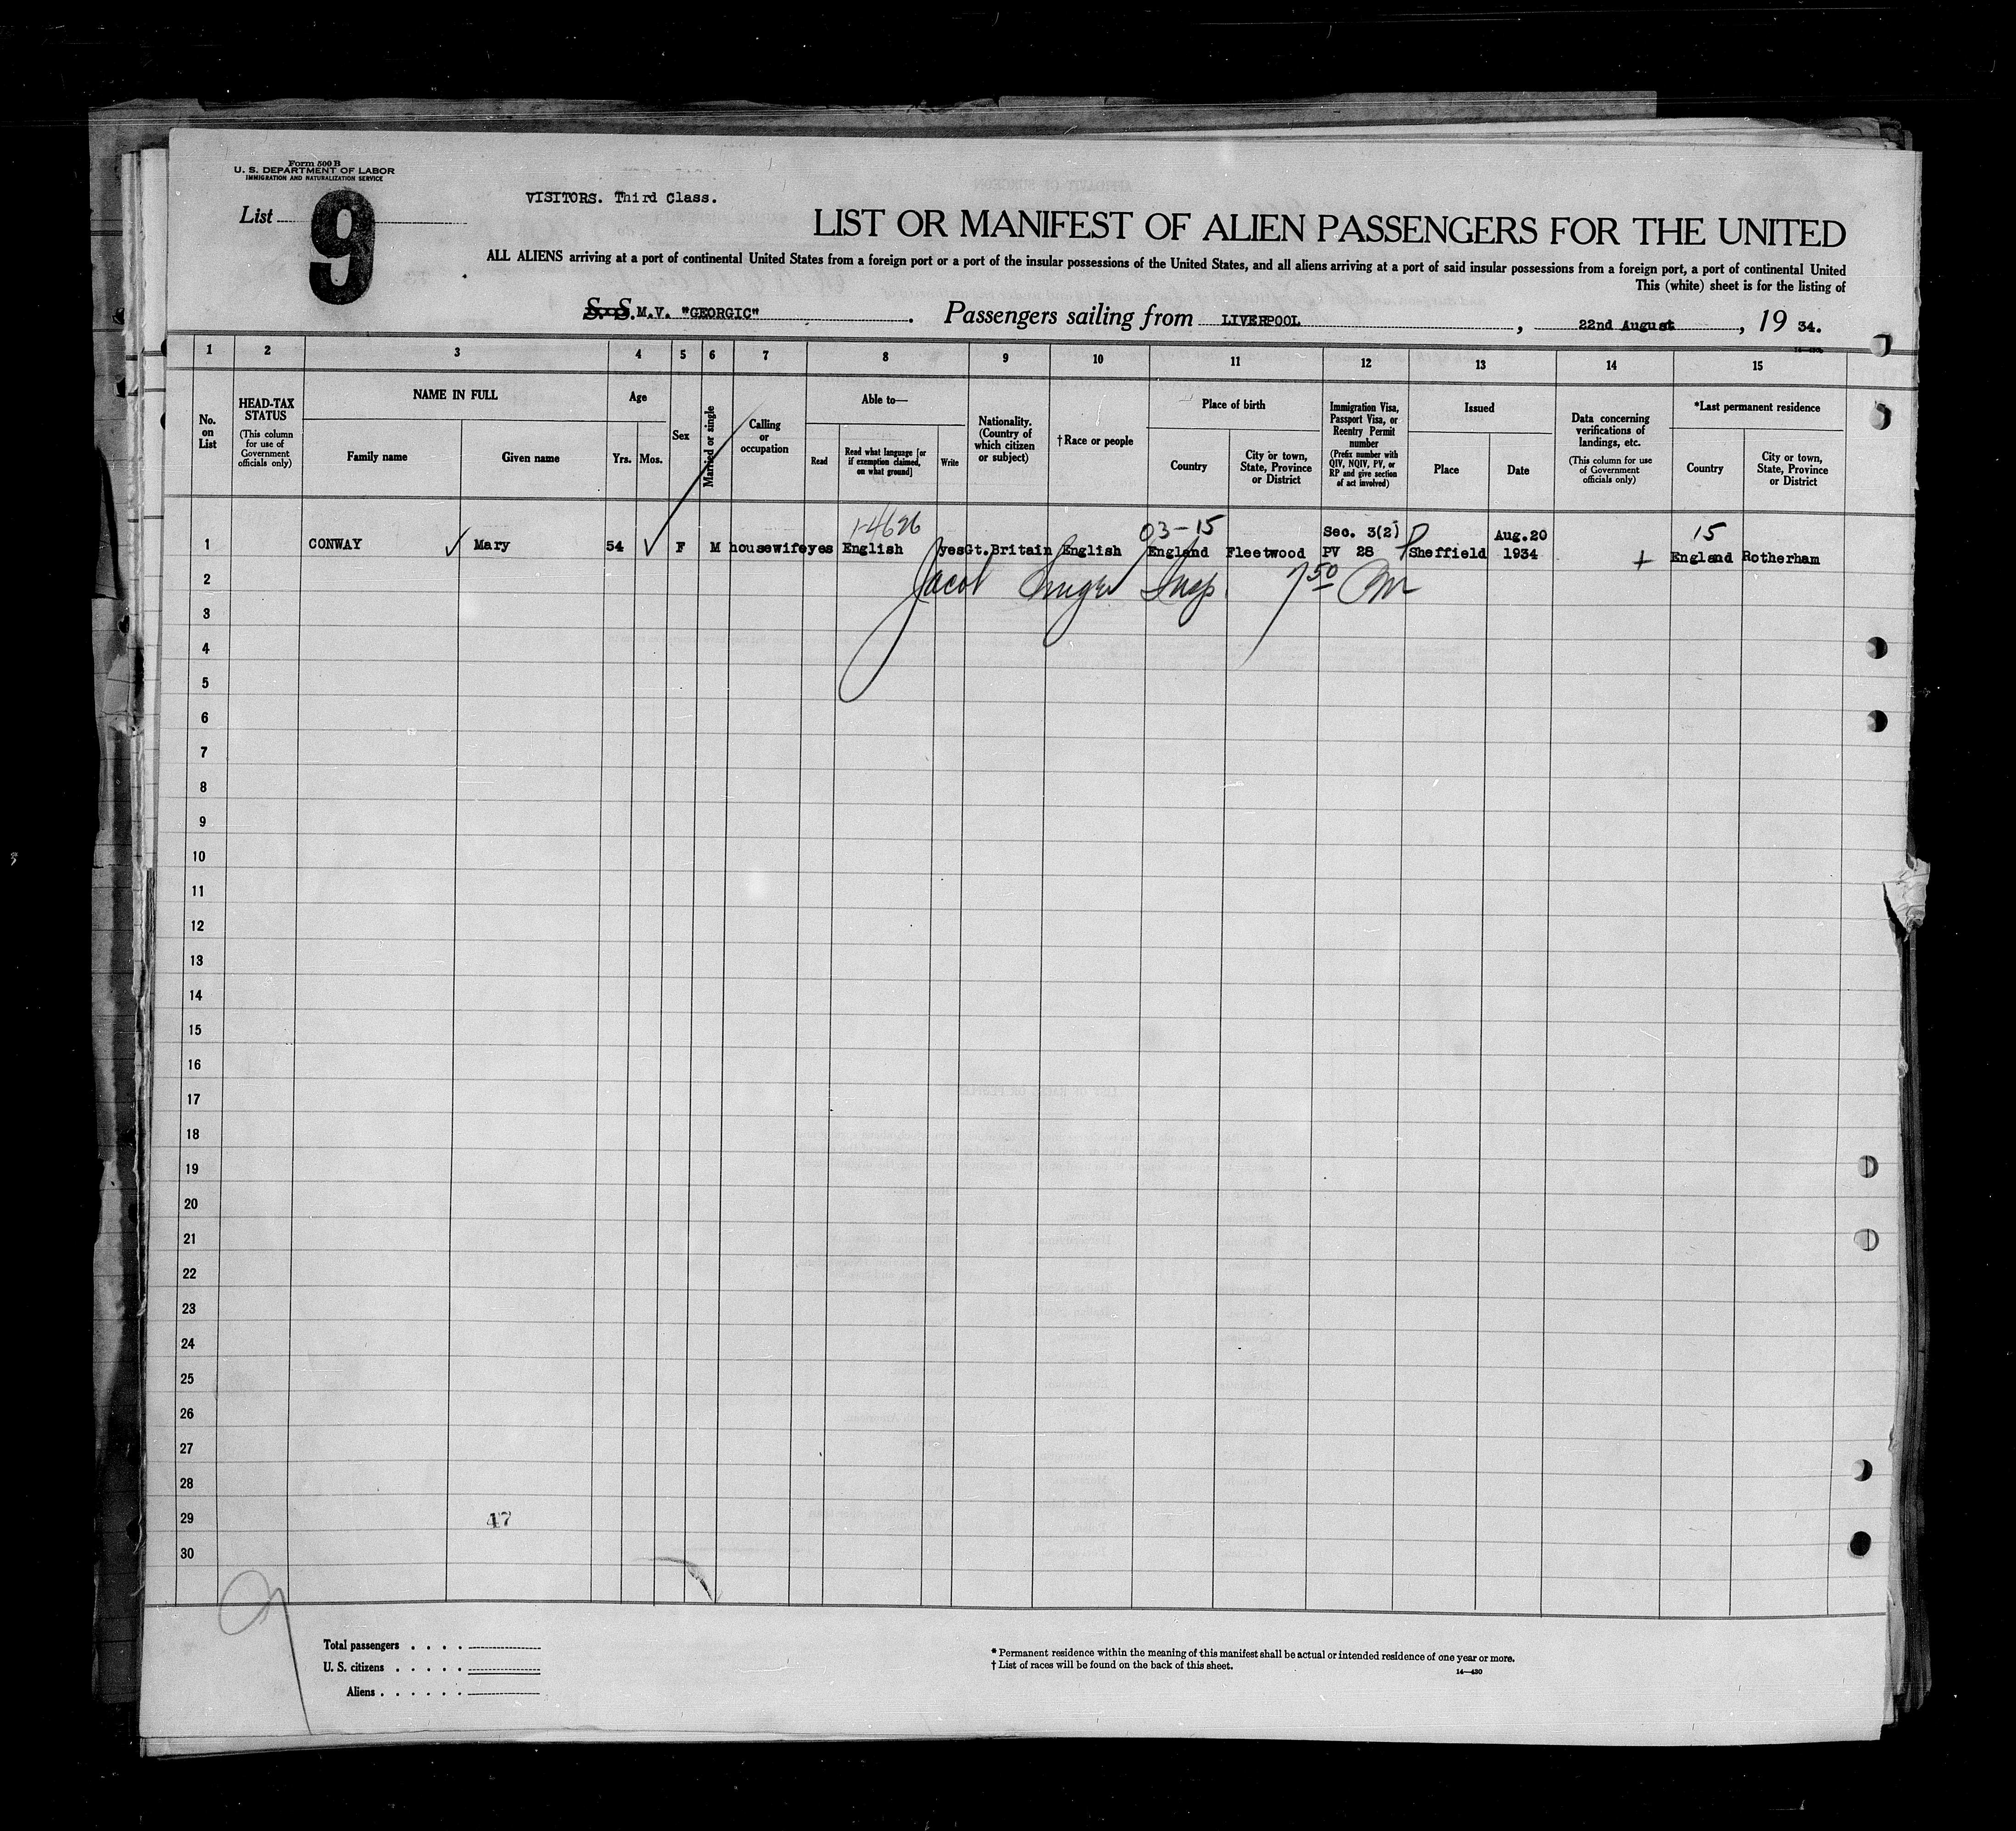 Form 500 B
U. S. DEPARTMENT OF LABOR
IMMIGRATION AND NATURALIZATION SERVICE
List 9
VISITORS. Third Class.
LIST OR MANIFEST OF ALIEN PASSENGERS FOR THE UNITED
ALL ALIENS arriving at a port of continental United States from a foreign port or a port of the insular possessions of the United States, and all aliens arriving at a port of said insular possessions from a foreign port, a port of continental United
This (white) sheet is for the listing of
S. S. M.V. "GEORGIC" . Passengers sailing from LIVERPOOL , 22nd August , 19 34.
1 2 3 4 5 6 7 8 9 10 11 12 13 14 15
No. on List
HEAD-TAX STATUS
(This column for use of Government officials only)
NAME IN FULL
Family name
Given name
Age
Yrs.
Mos.
Sex
Married or single
Calling or occupation
Able to—
Read
Read what language [or if exemption claimed, on what ground]
Write
Nationality. (Country of which citizen or subject)
†Race or people
Place of birth
Country
City or town, State, Province or District
Immigration Visa, Passport Visa, or Reentry Permit number
(Prefix number with QIV, NQIV, PV, or RP and give section of act involved)
Issued
Place
Date
Data concerning verifications of landings, etc.
(This column for use of Government officials only)
*Last permanent residence
Country
City or town, State, Province or District
1-4626 03-15 Sec. 3(2) Aug.20 15
1 CONWAY ✓ Mary 54 ✓ F M housewife yes English yes Gt.Britain English England Fleetwood PV 28 P Sheffield 1934 + England Rotherham
2 Jacob Insp. 750
3
4
5
6
7
8
9
10
11
12
13
14
15
16
17
18
19
20
21
22
23
24
25
26
27
28
29 47
30
Total passengers . . . .
U. S. citizens . . . . .
Aliens . . . . . .
* Permanent residence within the meaning of this manifest shall be actual or intended residence of one year or more.
† List of races will be found on the back of this sheet.
14—430